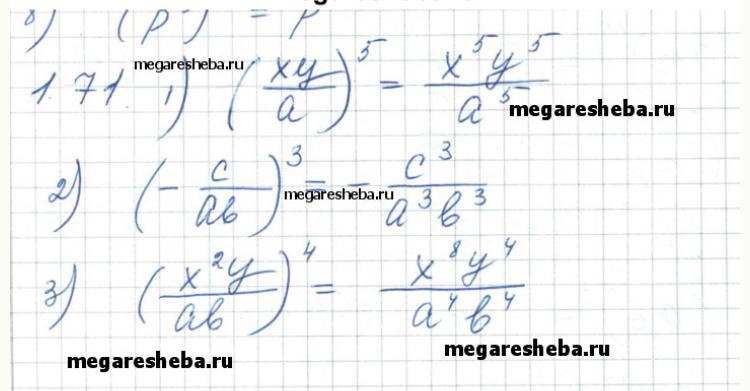 8) (p ) = p
1.71. 1) (xy/a)^5 = x^5y^5/a^5
megaresheba.ru
megaresheba.ru
2) (- c/ab)^3 = - c^3/a^3b^3
megaresheba.ru
3) (x^2y/ab)^4 = x^8y^4/a^4b^4
megaresheba.ru
megaresheba.ru